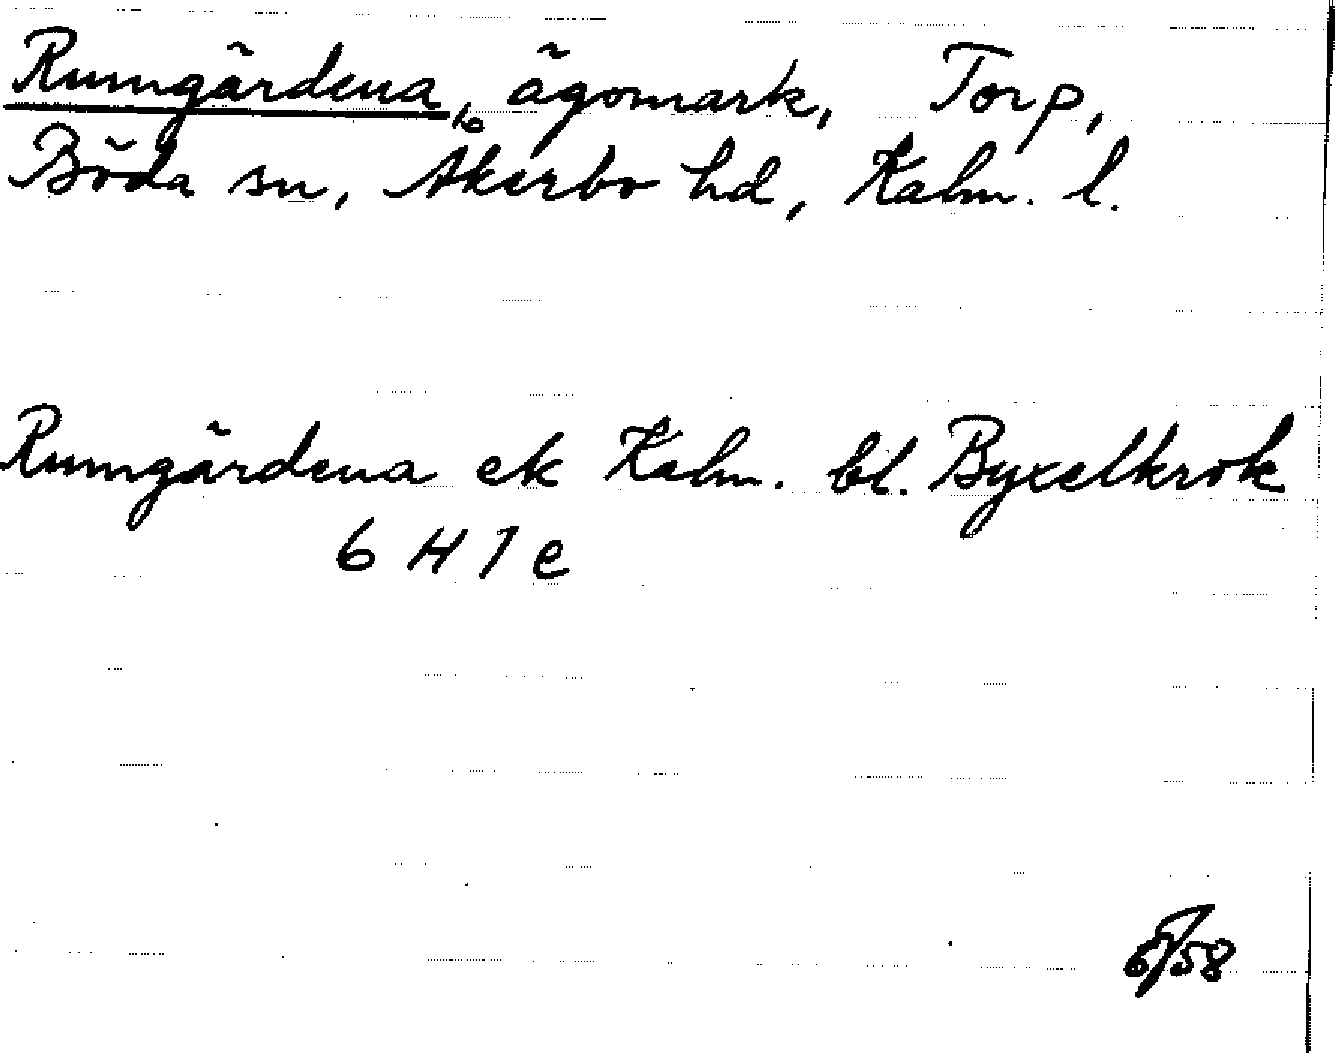 Rumgårdena, ägomark, Torp,
Böda sn, Åkerbo hd, Kalm. l.
Rumgårdena ek Kalm. bl. Byxelkrok
6 H 7 e